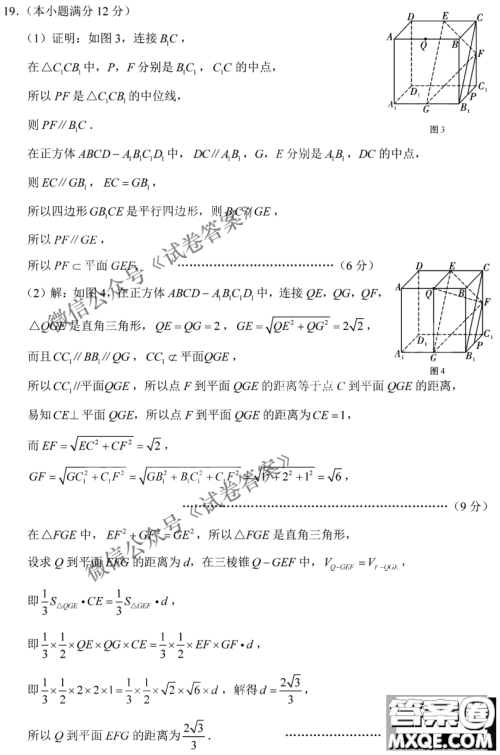 19.（本小题满分 12 分）
（1）证明：如图 3，连接 B₁C，
在△C₁CB₁ 中，P，F 分别是 B₁C₁，C₁C 的中点，
所以 PF 是△C₁CB₁ 的中位线，
则 PF∥B₁C．
在正方体 ABCD－A₁B₁C₁D₁ 中，DC∥A₁B₁，G，E 分别是 A₁B₁，DC 的中点，
则 EC∥GB₁，EC＝GB₁，
所以四边形 GB₁CE 是平行四边形，则 B₁C∥GE，
所以 PF∥GE，
所以 PF⊂平面 GEF． ……………………………（6 分）
D E C
A Q B
F
D₁ C₁
P
A₁ G B₁
图 3
（2）解：如图 4，在正方体 ABCD－A₁B₁C₁D₁ 中，连接 QE，QG，QF，
△QGE 是直角三角形，QE＝QG＝2，GE＝√(QE²＋QG²)＝2√2，
而且 CC₁∥BB₁∥QG，CC₁⊄平面QGE，
所以 CC₁∥平面QGE，所以点 F 到平面 QGE 的距离等于点 C 到平面 QGE 的距离，
易知 CE⊥平面 QGE，所以点 F 到平面 QGE 的距离为 CE＝1，
而 EF＝√(EC²＋CF²)＝√2，
GF＝√(GC₁²＋C₁F²)＝√(GB₁²＋B₁C₁²＋C₁F²)＝√(1²＋2²＋1²)＝√6，
……………………………（9 分）
D E C
A Q B
F
D₁ C₁
A₁ G B₁
图 4
在△FGE 中，EF²＋GF²＝GE²，所以△FGE 是直角三角形，
设求 Q 到平面 EFG 的距离为 d，在三棱锥 Q－GEF 中，V_{Q－GEF}＝V_{F－QGE}，
即 1/3 S△QGE•CE＝1/3 S△GEF•d，
即 1/3×1/2×QE×QG×CE＝1/3×1/2×EF×GF•d，
即 1/3×1/2×2×2×1＝1/3×1/2×√2×√6×d，解得 d＝2√3/3，
所以 Q 到平面 EFG 的距离为 2√3/3． ……………………
微信公众号《试卷答案》
微信公众号《试卷答案》
答案圈
MXQE.COM